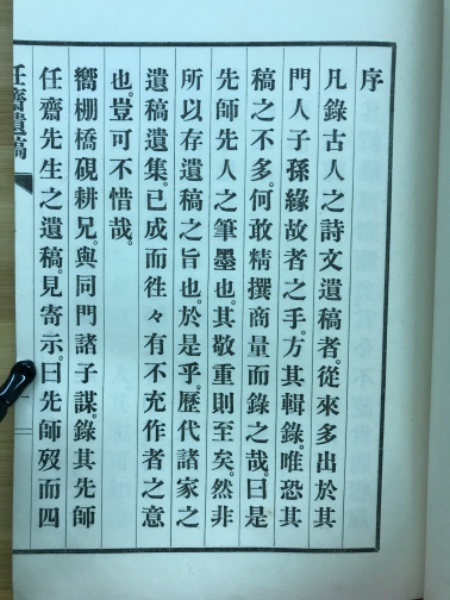 序
凡錄古人之詩文遺稿者。從來多出於其
門人子孫緣故者之手。方其輯錄。唯恐其
稿之不多。何敢精撰商量而錄之哉。曰是
先師先人之筆墨也。其敬重則至矣。然非
所以存遺稿之旨也。於是乎。歷代諸家之
遺稿遺集。已成而徃々有不充作者之意
也。豈可不惜哉。
嚮棚橋硯耕兄。與同門諸子謀。錄其先師
任齋先生之遺稿。見寄示。曰先師歿而四
任齋遺稿